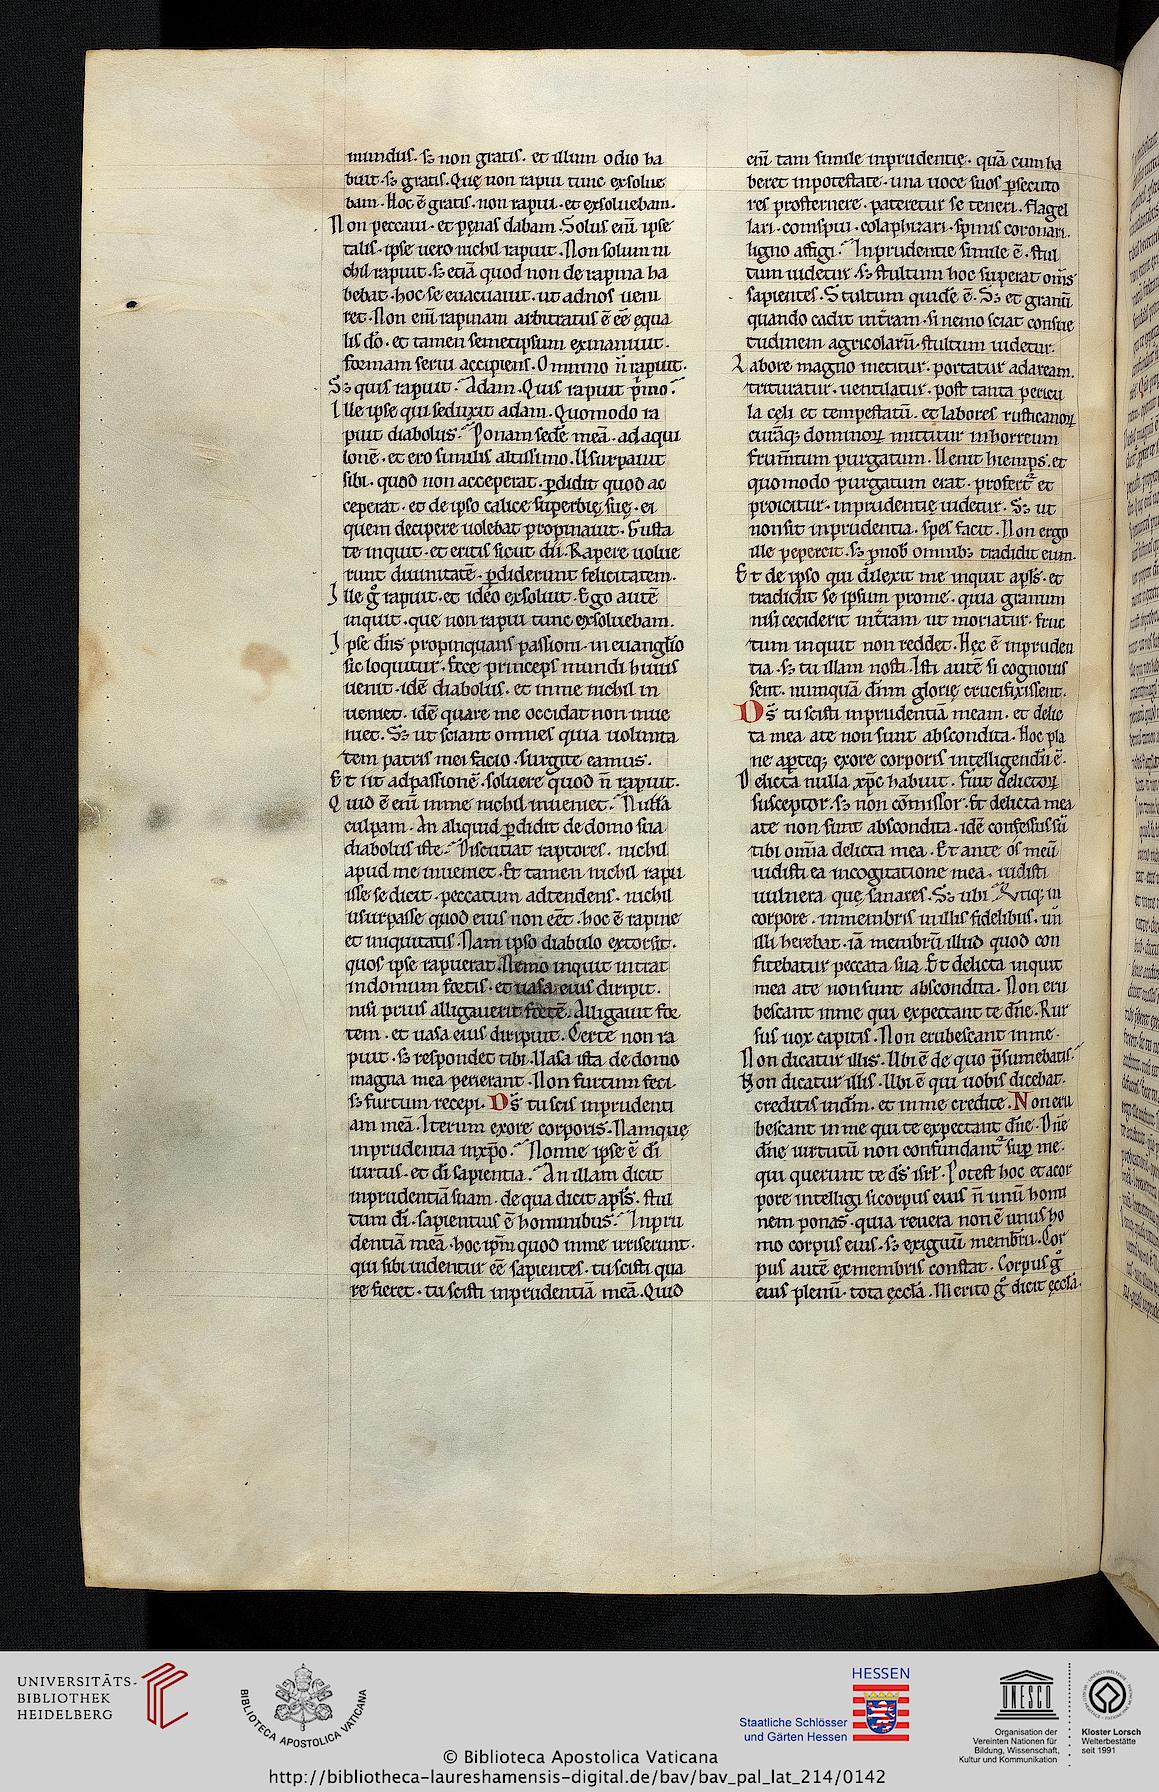 mundus. sꝫ non gratis. et illum odio ha
buit. sꝫ gratis. Quę non rapui tunc exsolue
bam. Hoc ē gratis. non rapui. et exsoluebam.
Non peccaui. et pęnas dabam. Solus eni̅ ipse
talis. ipse uero nichil rapuit. Non solum ni
chil rapuit. sꝫ etiā quod non de rapina ha
bebat. hoc se euacuauit. ut ad nos ueni
ret. Non eni̅ rapinam arbitratus ē eē ęqua
lis dō. et tamen semetipsum exinaniuit.
formam serui accipiens. Omnino n̄ rapuit.
Sꝫ quis rapuit. Adam. Quis rapuit p̄mo.
Ille ipse qui seduxit adam. Quomodo ra
puit diabolus. Ponam sedē meā. ad aqui
lonē. et ero similis altissimo. Usurpauit
sibi. quod non acceperat. ꝑdidit quod ac
ceperat. et de ipso calice superbię suę. ei
quem decipere uolebat propinauit. Gusta
te inquit. et eritis sicut dii̅. Rapere uolue
runt diuinitatē. ꝑdiderunt felicitatem.
Ille g̊ rapuit. et ideo exsoluit. Ego autē
inquit. que non rapui tunc exsoluebam.
Ipse dn̄s propinquans passioni. in euangl̄io
sic loquitur. Ecce princeps mundi huius
uenit. idē diabolus. et in me nichil in
ueniet. idē quare me occidat non inue
niet. Sꝫ ut sciant omnes quia uolunta
tem patris mei facio. surgite eamus.
Et it ad passionē. soluere quod n̄ rapuit.
Quid ē eni̅ in me nichil inueniet. Nullā
culpam. An aliquid ꝑdidit de domo sua
diabolus iste. Discutiat raptores. nichil
apud me inueniet. Et tamen nichil rapu
isse se dicit. peccatum adtendens. nichil
usurpasse quod eius non eēt. hoc ē rapine
et iniquitatis. Nam ipso diabulo extorsit.
quos ipse rapuerat. Nemo inquit intrat
in domum fortis. et uasa eius diripit.
nisi prius alligauerit fortē. Alligauit for
tem. et uasa eius diripuit. Certe non ra
puit. sꝫ respondet tibi. Uasa ista de domo
magna mea perierant. Non furtum feci.
sꝫ furtum recepi. Ds̄ tu scis inprudenti
am meā. Iterum ex ore corporis. Namque
inprudentia in xp̄o. Nonne ipse ē di̅
uirtus. et di̅ sapientia. An illam dicit
inprudentiā suam. de qua dicit apl̄s. stul
tum di̅. sapientius ē hominibus. Inpru
dentiā meā. hoc ipm̄ quod in me irriserunt.
qui sibi uidentur eē sapientes. tu scisti qua
re fieret. tu scisti inprudentiā meā. Quid
eni̅ tam simile inprudentię. quā cum ha
beret in potestate. una uoce suos ꝑsecuto
res prosternere. pateretur se teneri. flagel
lari. conspui. colaphizari. spinis coronari.
ligno affigi. Inprudentie simile ē. stul
tum uidetur. sꝫ stultum hoc superat om̄s
sapientes. Stultum quidē ē. Sꝫ et granū
quando cadit in tr̄am. si nemo sciat consue
tudinem agricolarū. stultum uidetur.
Labore magno metitur. portatur ad aream.
trituratur. uentilatur. post tanta pericu
la cęli et tempestatū. et labores rusticanoꝝ
curāqꝫ dominoꝝ mittitur in horreum
frum̄tum purgatum. Uenit hiemps. et
quomodo purgatum erat. profert̄ et
proicitur. inprudentię uidetur. Sꝫ ut
non sit inprudentia. spes facit. Non ergo
ille pepercit. sꝫ ꝓ nob̄ omnibꝫ tradidit eum.
Et de ipso qui dilexit me inquit apl̄s. et
tradidit se ipsum pro me. quia granum
nisi ceciderit in tr̄am ut moriatur. fruc
tum inquit non reddet. Hęc ē inpruden
tia. sꝫ tu illam nosti. Isti autē si cognouis
sent. numquā dn̄m glorię crucifixissent.
Ds̄ tu scisti inprudentiā meam. et delic
ta mea a te non sunt abscondita. Hoc pla
ne aꝑteqꝫ ex ore corporis intelligendu̅ ē.
Delicta nulla xp̄c habuit. fuit delictoꝝ
susceptor. sꝫ non cōmissor. Et delicta mea
a te non sunt abscondita. idē confessus su̅
tibi om̄ia delicta mea. Et ante os meū
uidisti ea in cogitatione mea. uidisti
uulnera quę sanares. Sꝫ ubi. Utiqꝫ in
corpore. in membris in illis fidelibus. un̄
illi herebat. iā membrū illud quod con
fitebatur peccata sua. Et delicta inquit
mea a te non sunt abscondita. Non eru
bescant in me qui expectant te dn̄e. Rur
sus uox capitis. Non erubescant in me.
Non dicatur illis. Ubi ē de quo p̄sumebatis.
Non dicatur illis. Ubi ē qui uobis dicebat.
creditis in dm̄. et in me credite. Non eru
bescant in me qui te expectant dn̄e. Dn̄e
dn̄e uirtutū non confundant̄ suꝑ me.
qui querunt te ds̄ isrl̄. Potest hoc et a cor
pore intelligi si corpus eius n̄ unū homi
nem ponas. quia reuera non ē unus ho
mo corpus eius. sꝫ exiguū membrū. Cor
pus autē ex membris constat. Corpus g̊
eius plenū. tota ęccl̄a. Merito g̊ dicit ęccl̄a.
UNIVERSITÄTS-
BIBLIOTHEK
HEIDELBERG
BIBLIOTECA APOSTOLICA VATICANA
HESSEN
Staatliche Schlösser
und Gärten Hessen
UNESCO
Organisation der
Vereinten Nationen für
Bildung, Wissenschaft,
Kultur und Kommunikation
Kloster Lorsch
Welterbestätte
seit 1991
© Biblioteca Apostolica Vaticana
http://bibliotheca-laureshamensis-digital.de/bav/bav_pal_lat_214/0142